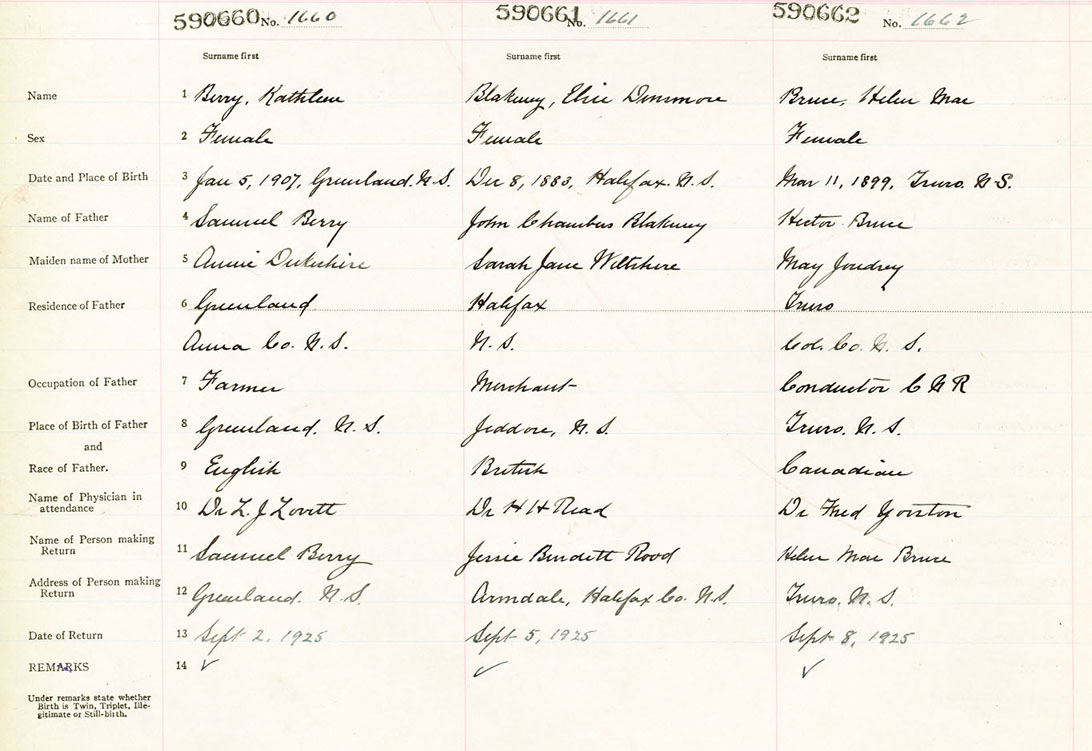 590660 No. 1660 590661 No. 1661 590662 No. 1662
Surname first Surname first Surname first
Name 1 Berry, Kathleen Blakeney, Elsie Dinsmore Bruce, Helen Mae
Sex 2 Female Female Female
Date and Place of Birth 3 Jan 5, 1907, Greenland. N.S. Dec 8, 1883, Halifax. N.S. Mar 11, 1899, Truro. N.S.
Name of Father 4 Samuel Berry John Chambers Blakeney Hector Bruce
Maiden name of Mother 5 Annie Dukeshire Sarah Jane Wiltshire May Joudrey
Residence of Father 6 Greenland Halifax Truro
Anna Co. N.S. N.S. Col. Co. N.S.
Occupation of Father 7 Farmer Merchant Conductor C N R
Place of Birth of Father 8 Greenland. N.S. Jeddore, N.S. Truro. N.S.
and
Race of Father. 9 English British Canadian
Name of Physician in
attendance 10 Dr L. J Lovitt Dr H H Read Dr Fred Yorston
Name of Person making
Return 11 Samuel Berry Jessie Burdett Rood Helen Mae Bruce
Address of Person making
Return 12 Greenland. N.S. Armdale, Halifax Co. N.S. Truro. N.S.
Date of Return 13 Sept 2, 1925 Sept 5, 1925 Sept 8, 1925
REMARKS 14 ✓ ✓ ✓
Under remarks state whether
Birth is Twin, Triplet, Ille-
gitimate or Still-birth.